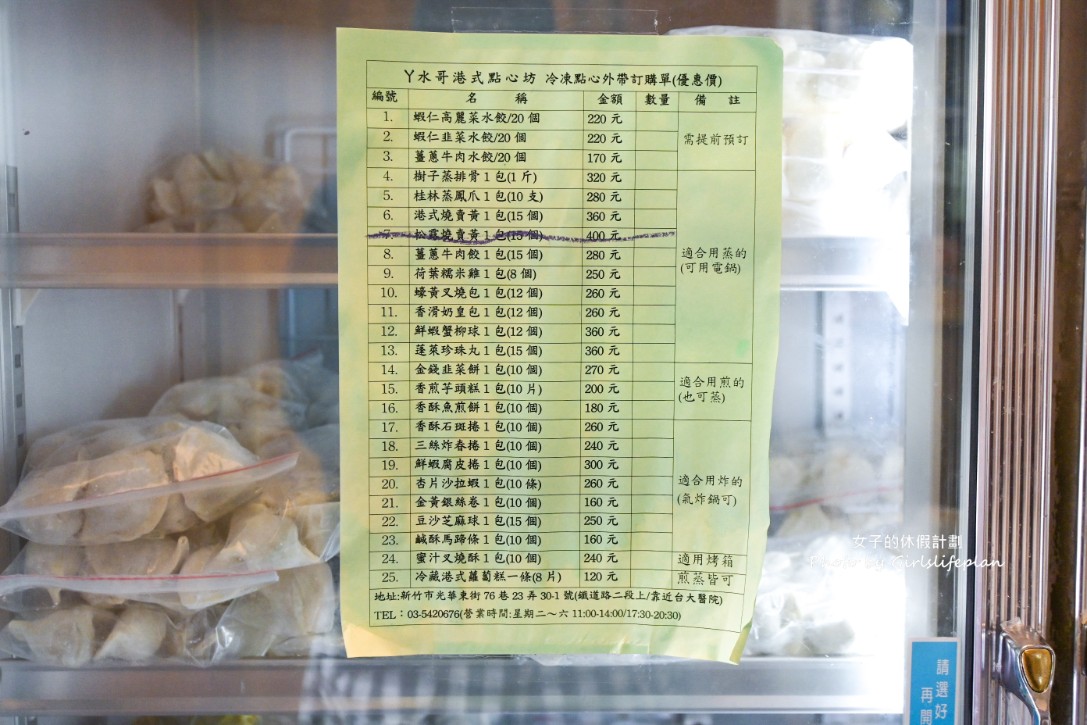 丫水哥港式點心坊 冷凍點心外帶訂購單(優惠價)
編號 名稱 金額 數量 備註
1. 蝦仁高麗菜水餃/20 個 220 元
2. 蝦仁韭菜水餃/20 個 220 元 需提前預訂
3. 薑蔥牛肉水餃/20 個 170 元
4. 樹子蒸排骨 1 包(1 斤) 320 元
5. 桂林蒸鳳爪 1 包(10 支) 280 元
6. 港式燒賣黃 1 包(15 個) 360 元
7. 松露燒賣黃 1 包(15 個) 400 元
8. 薑蔥牛肉餃 1 包(15 個) 280 元 適合用蒸的
(可用電鍋)
9. 荷葉糯米雞 1 包(8 個) 250 元
10. 蠔黃叉燒包 1 包(12 個) 260 元
11. 香滑奶皇包 1 包(12 個) 260 元
12. 鮮蝦蟹柳球 1 包(12 個) 360 元
13. 蓬萊珍珠丸 1 包(15 個) 360 元
14. 金錢韭菜餅 1 包(10 個) 270 元
15. 香煎芋頭糕 1 包(10 片) 200 元 適合用煎的
(也可蒸)
16. 香酥魚煎餅 1 包(10 個) 180 元
17. 香酥石斑捲 1 包(10 個) 260 元
18. 三絲炸春捲 1 包(10 個) 240 元
19. 鮮蝦腐皮捲 1 包(10 個) 300 元
20. 杏片沙拉蝦 1 包(10 條) 260 元 適合用炸的
(氣炸鍋可)
21. 金黃銀絲卷 1 包(10 個) 160 元
22. 豆沙芝麻球 1 包(15 個) 250 元
23. 鹹酥馬蹄條 1 包(10 個) 160 元
24. 蜜汁叉燒酥 1 包(10 個) 240 元 適用烤箱
25. 冷藏港式蘿蔔糕一條(8 片) 120 元 煎蒸皆可
地址:新竹市光華東街 76 巷 23 弄 30-1 號(鐵道路二段上/靠近台大醫院)
TEL：03-5420676(營業時間:星期二～六 11:00-14:00/17:30-20:30)
女子的休假計劃
Photo by Girlslifeplan
請選好
再開